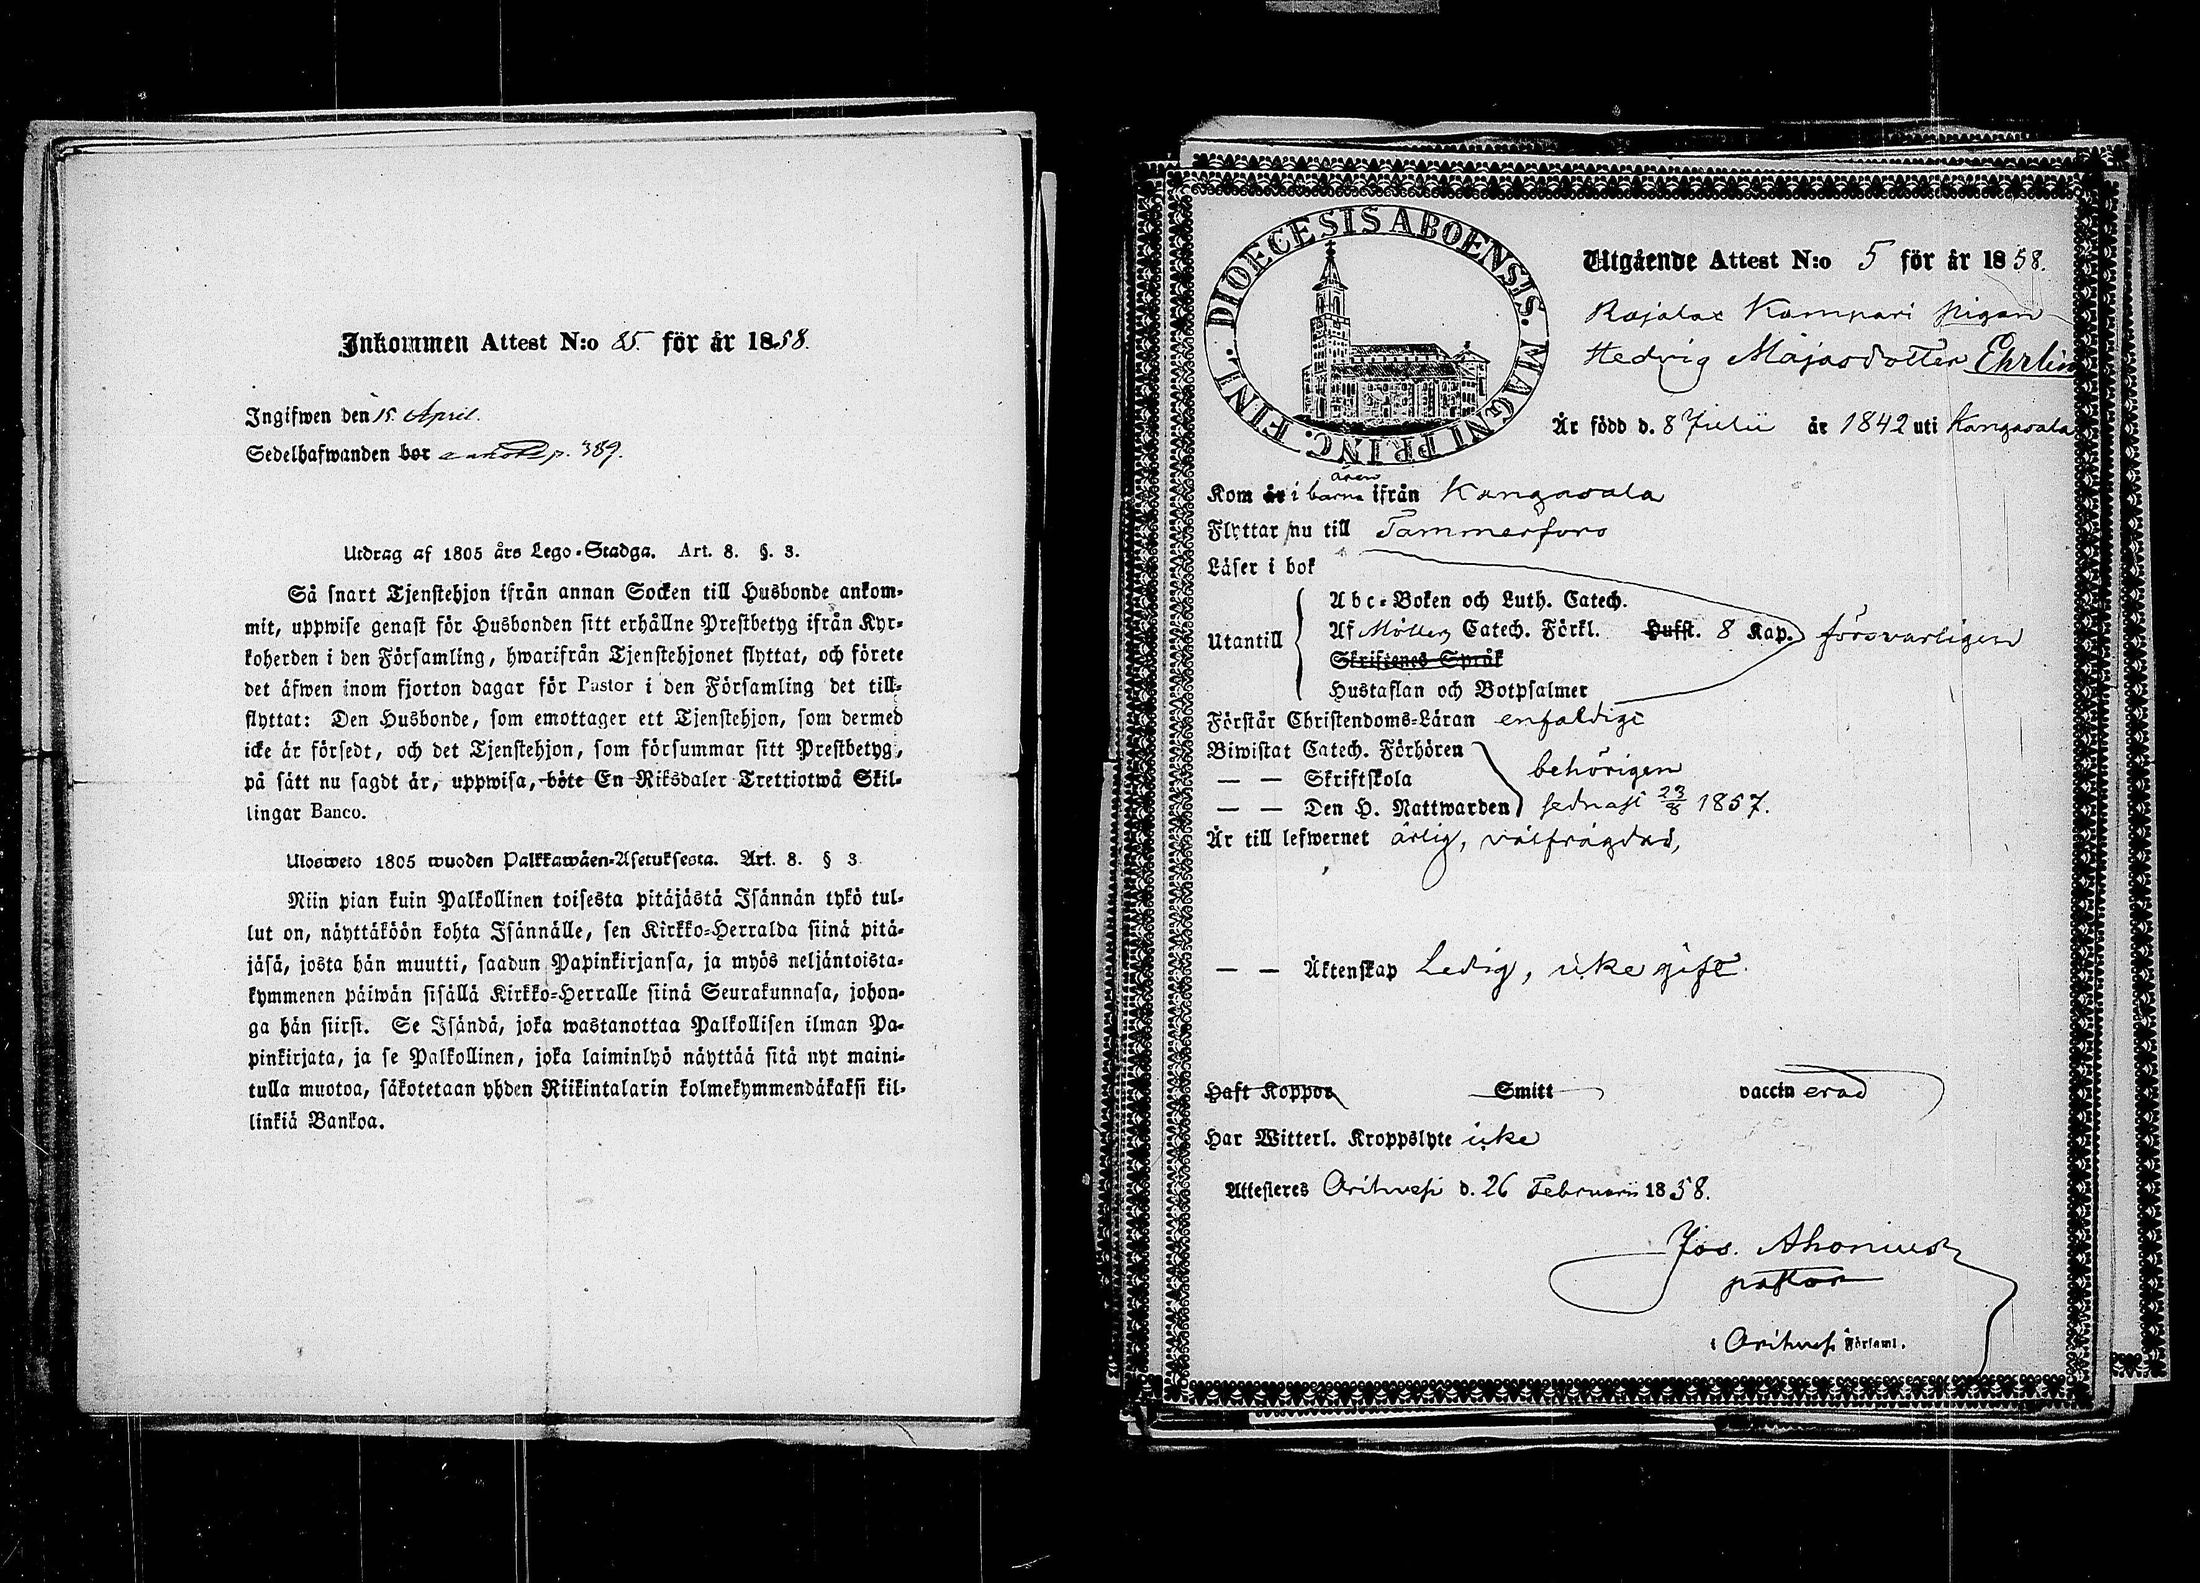 Inkommen Attest N:o 85. för år 1858.
Ingifwen den 15. April.
Sedelhafwanden bor annot. p. 389.
Utdrag af 1805 års Lego-Stadga. Art. 8. §. 3.
Så snart Tjenstehjon ifrån annan Socken till Husbonde ankom-
mit, uppwise genast för Husbonden sitt erhållne Prestbetyg ifrån Kyr-
koherden i den Församling, hwarifrån Tjenstehjonet flyttat, och förete
det äfwen inom fjorton dagar för Pastor i den Församling det till-
flyttat: Den Husbonde, som emottager ett Tjenstehjon, som dermed
icke är försedt, och det Tjenstehjon, som försummar sitt Prestbetyg,
på sätt nu sagdt är, uppwisa, böte En Riksdaler Trettiotwå Skil-
lingar Banco.
Ulosweto 1805 wuoden Palkkawäen-Asetuksesta. Art. 8. § 3.
Niin pian kuin Palkollinen toisesta pitäjästä Isännän tykö tul-
lut on, näyttäköön kohta Isännälle, sen Kirkko-Herralda siinä pitä-
jäsä, josta hän muutti, saadun Papinkirjansa, ja myös neljäntoista-
kymmenen päiwän sisällä Kirkko-Herralle siinä Seurakunnasa, johon-
ga hän siirsi. Se Isändä, joka wastanottaa Palkollisen ilman Pa-
pinkirjata, ja se Palkollinen, joka laiminlyö näyttää sitä nyt maini-
tulla muotoa, säkotetaan yhden Riikintalarin kolmekymmendäkaksi kil-
linkiä Bankoa.
DIOECESIS ABOENSIS. MAGNI PRINC. FINL.
Utgående Attest N:o 5 för år 1858.
Rajalax Kampari pigan
Hedvig Majasdotter Ehrlin
Är född d. 8 Julii år 1842 uti Kangasala
Kom år i barna åren ifrån Kangasala
Flyttar nu till Tammerfors
Läser i bok
Abc-Boken och Luth. Catech.
Utantill Af Möllers Catech. Förkl. Hufst. 8 Kap. försvarligen
Skriftenes Språk
Hustaflan och Botpsalmer
Förstår Christendoms-Läran enfaldigt
Biwistat Catech. Förhören
— — Skriftskola behörigen
— — Den H. Nattwarden sednast 23/8 1857.
Är till lefwernet ärlig, välfrägdad,
— — Äktenskap Ledig, icke gift.
Haft Koppor Smitt vaccinerad
Har Witterl. Kroppslyte icke
Attesteres Orihvesi d. 26 Februarii 1858.
Jos. Ahonius
pastor
i Orihvesi Församl.